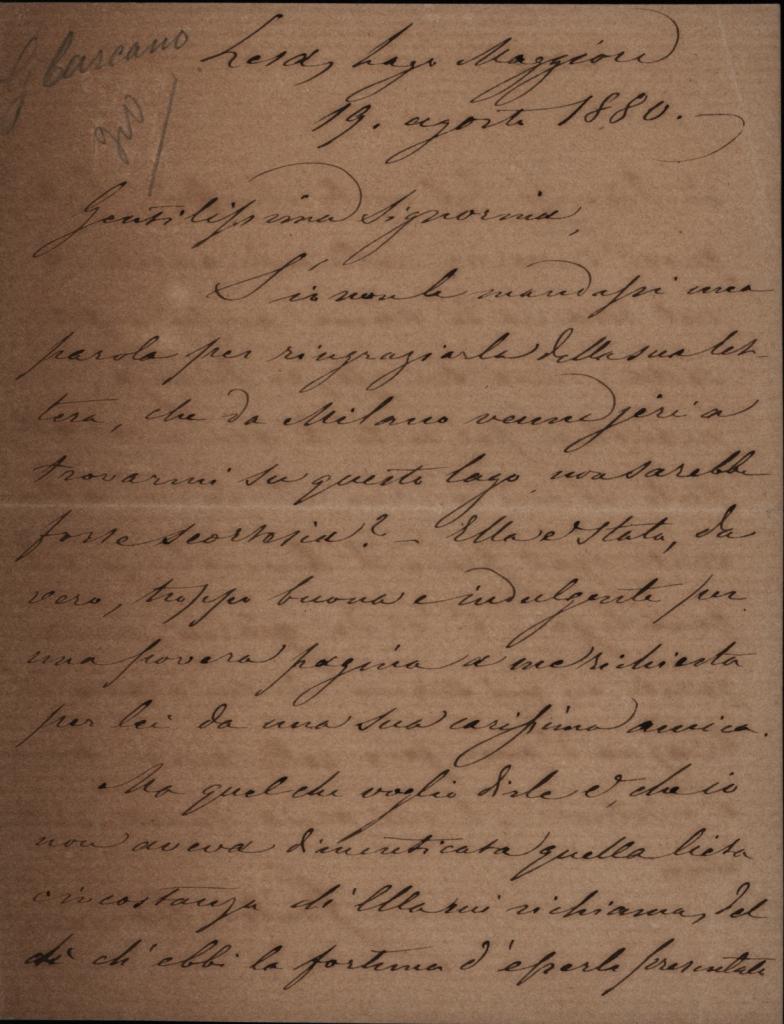 G Carcano
Lesa, Lago Maggiore
19. agosto 1880.
Gentilissima Signorina,
S'io non le mandassi una
parola per ringraziarla della sua let-
tera, che da Milano venne jeri a
trovarmi su questo lago, non sarebbe
forse scortesia? - Ella è stata, da
vero, troppo buona e indulgente per
una povera pagina a me richiesta
per lei da una sua carissima amica.
Ma quel che voglio dirle è, che io
non aveva dimenticata quella lieta
circostanza di Ella mi richiama, del
dì ch'ebbi la fortuna d'esserle presentato